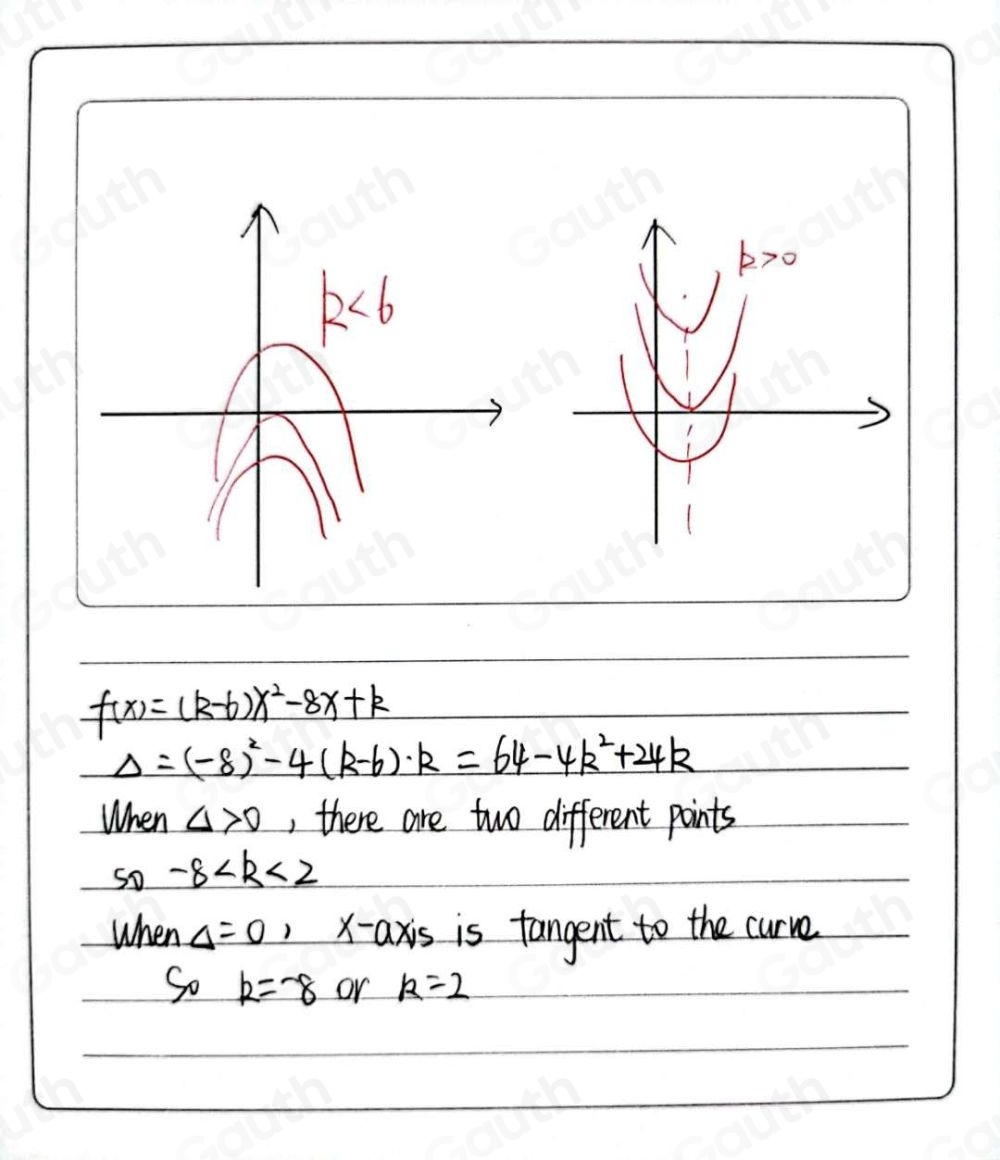 k<6
k>0
f(x)=(k-6)x²-8x+k
Δ=(-8)²-4(k-6)·k=64-4k²+24k
When Δ>0, there are two different points
so -8<k<2
When Δ=0, x-axis is tangent to the curve
So k=-8 or k=2
Gauth